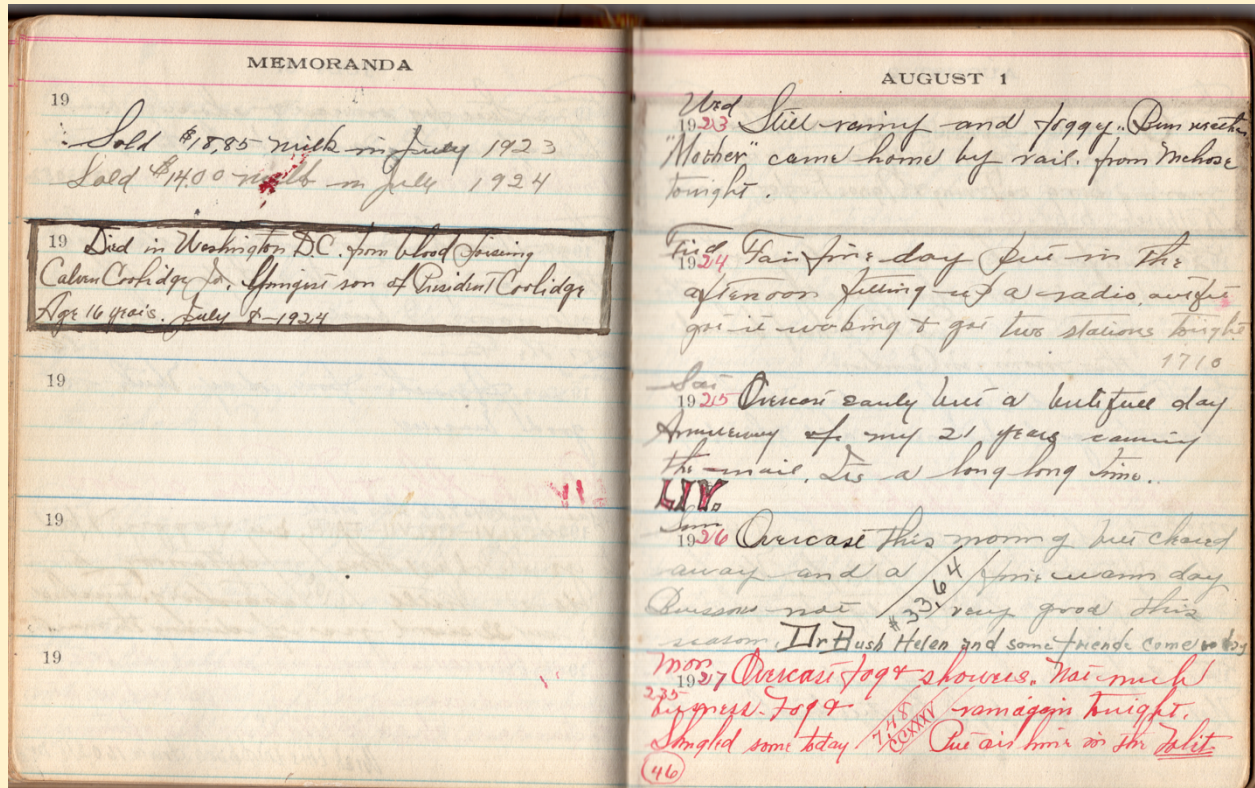 MEMORANDA
19
Sold $18.85 milk in July 1923
Sold $14.00 milk in July 1924
19 Died in Washington D.C. from blood poisoning
Calvin Coolidge Jr. Youngest son of President Coolidge
Age 16 years. July 8-1924
19
19
19
AUGUST 1
Wed
1923 Still rainy and foggy.
"Mother" came home by rail. from
tonight.
1924 Fair fine day Put in the
afternoon fitting up a radio,
got it working & got two stations tonight
1710
Sat
1925 Overcast early but a butifull day
Anniversary of my 21 years carring
the mail. Its a long long time..
LIV.
Sun
1926 Overcast this morning but cleared
away and a fine warm day
$33.64
not very good this
season. Dr Bush Helen and some friends come
Mon
1927 Overcast fog & showers. Not much
235
Fog & rain again tonight.
748
CCXXXV
some today Put air line in the
46